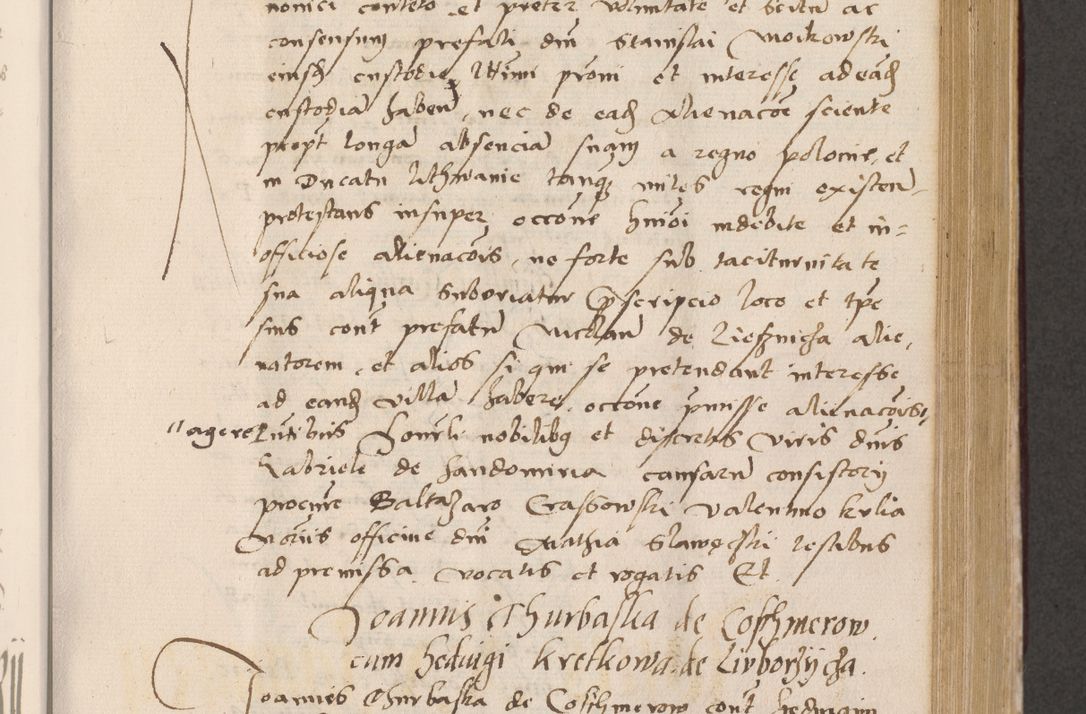 nonici conreto et preter voluntate et scitu ac
consensum prefati dni Stanislai Moikowski
eiusdem custodie proni et interesse ad eadem
custodia haben, nec de eadem alienacoe sciente
propt longa absencia suam a regno polonie, et
in Ducatu lithwanie tanq miles regni existen
protestans insuper occone hmoi indebite et in=
officiose alienacois, ne forte sub taciturnitate
sua aliqua suboriatur prescripcio loco et tpe
suis cont prefatu de Liesznicza alie,
natorem, et alios si qui se pretendant interesse
ad eandem villa habere, occone pmisse alienacois
"agere Pntibus nobilibq et discretis viris dnis
Gabriele de Sandomiria causaru consistorij
procure Baltazaro Crasowski Valentino
Notrijs officine dni Mathia Slawęcski testibus
ad premissa vocatis et rogatis Et
Joannis Churbaska de Coschmerow
cum hedwigi Kretkowa de Liuborzycza.
Joannes Churbaska de Coschmerow cont hedwigim